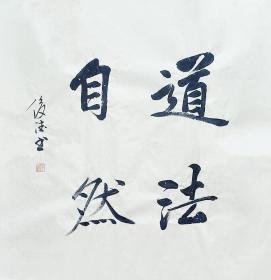 道法
自然
俊德书